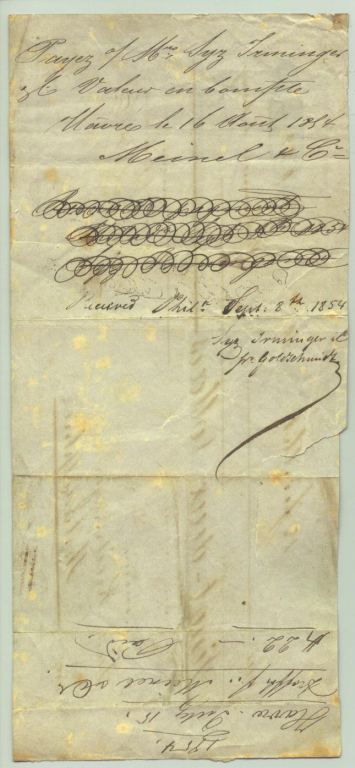 Payez à/ Mrs Syz Irminger
& Co Valeur en compte
Havre le 16 Août 1854
Meinel & Co
Received Phila Sept. 8th 1854
Syz Irminger & Co
pr Goldschmidt
1854
Havre July 15.
Draft f. Meinel & Co
$ 22.- Paid